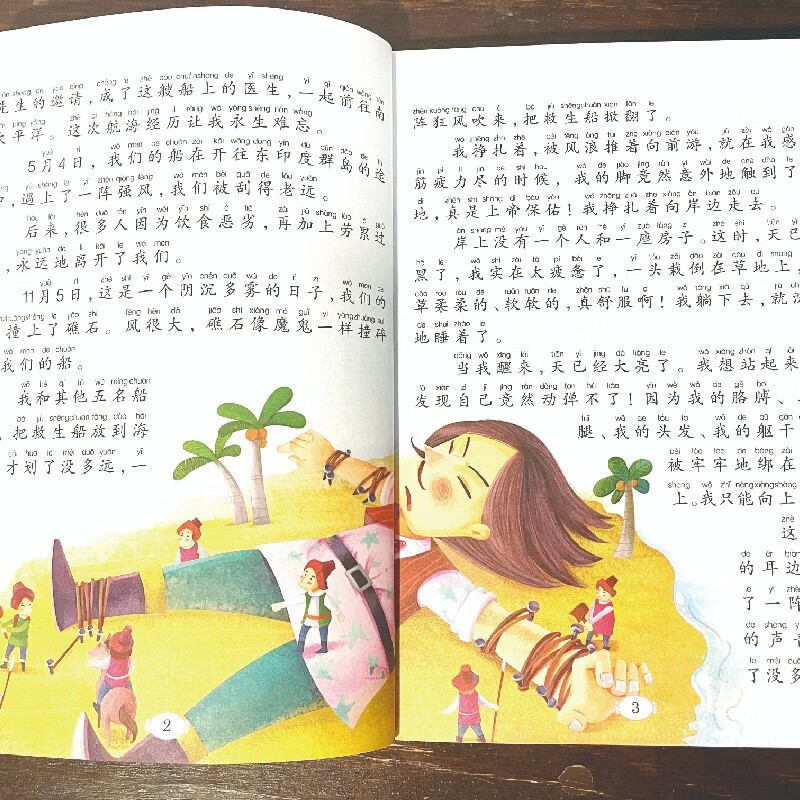 先生的邀请，成了这艘船上的医生，一起前往南
太平洋。这次航海经历让我永生难忘。
5月4日，我们的船在开往东印度群岛的途
中，遇上了一阵强风，我们被刮得老远。
后来，很多人因为饮食恶劣，再加上劳累过
，永远地离开了我们。
11月5日，这是一个阴沉多雾的日子，我们的
撞上了礁石。风很大，礁石像魔鬼一样撞碎
我们的船。
我和其他五名船
，把救生船放到海
才划了没多远，一
2
阵狂风吹来，把救生船掀翻了。
我挣扎着，被风浪推着向前游，就在我感
筋疲力尽的时候，我的脚竟然意外地触到了
地，真是上帝保佑！我挣扎着向岸边走去。
岸上没有一个人和一座房子。这时，天已
黑了，我实在太疲惫了，一头栽倒在草地上，
草柔柔的、软软的，真舒服啊！我躺下去，就沉
地睡着了。
当我醒来，天已经大亮了。我想站起来
发现自己竟然动弹不了！因为我的胳膊、
腿、我的头发、我的躯干
被牢牢地绑在
上。我只能向上
这
的耳边
了一阵
的声音
了没多
3